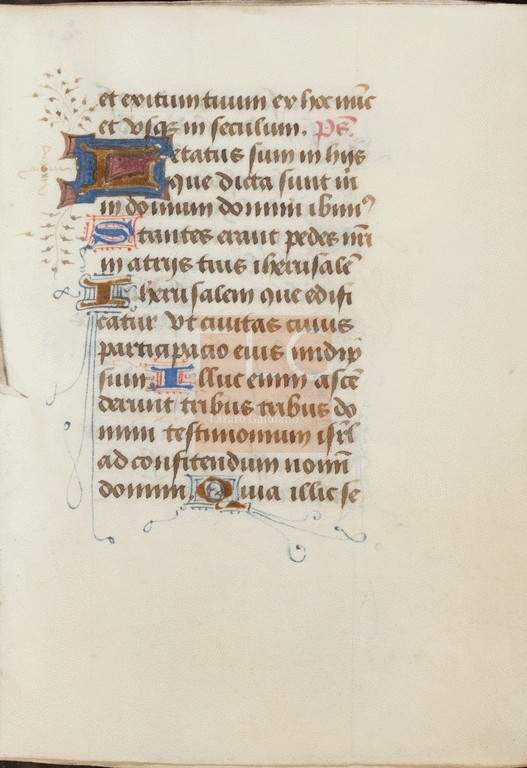 et exitum tuum ex hoc nūc
et vsqz in seculum. ps̄.
Letatus sum in hijs
que dicta sunt m̄
in domum domini ibimꝰ
Stantes erant pedes nr̄i
in atrijs tuis iherusalē
Iherusalem que edifi
catur vt ciuitas cuius
participacio eius in idip̄
sum. Illuc enim ascē
derunt tribus tribus do
mini testimonium isrl̄
ad confitendum nomī
domini. Quia illic se